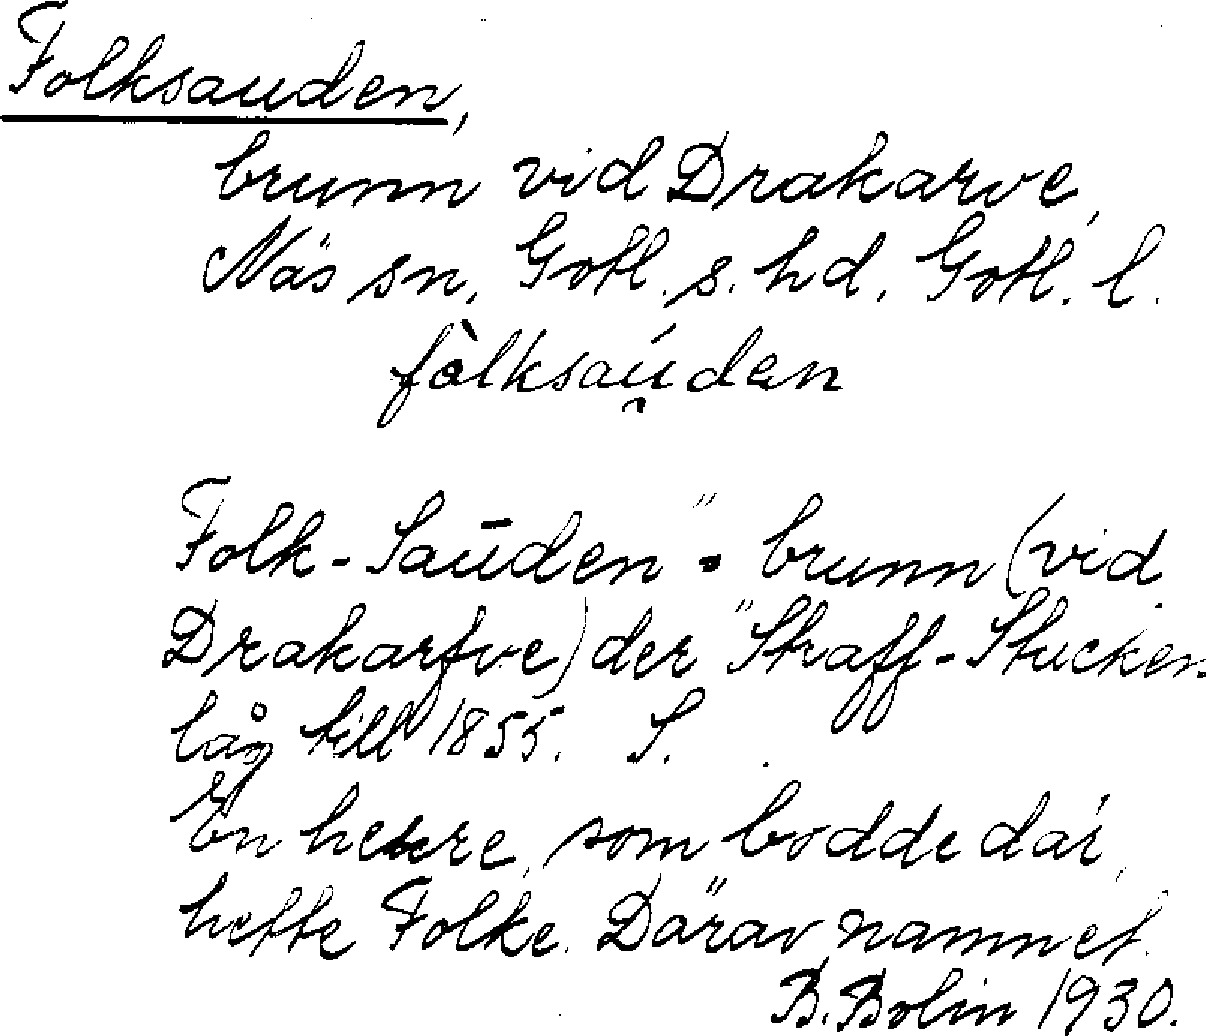 Folksauden,
brunn vid Drakarve,
Näs sn, Gotl. s. hd, Gotl. l.
fòlksaú̯den
Folk-Saūden" = brunn (vid
Drakarfve) der "Straff-Stucken
låg till 1855. S.
En herre, som bodde där,
hette Folke. Därav namnet.
B. Bolin 1930.